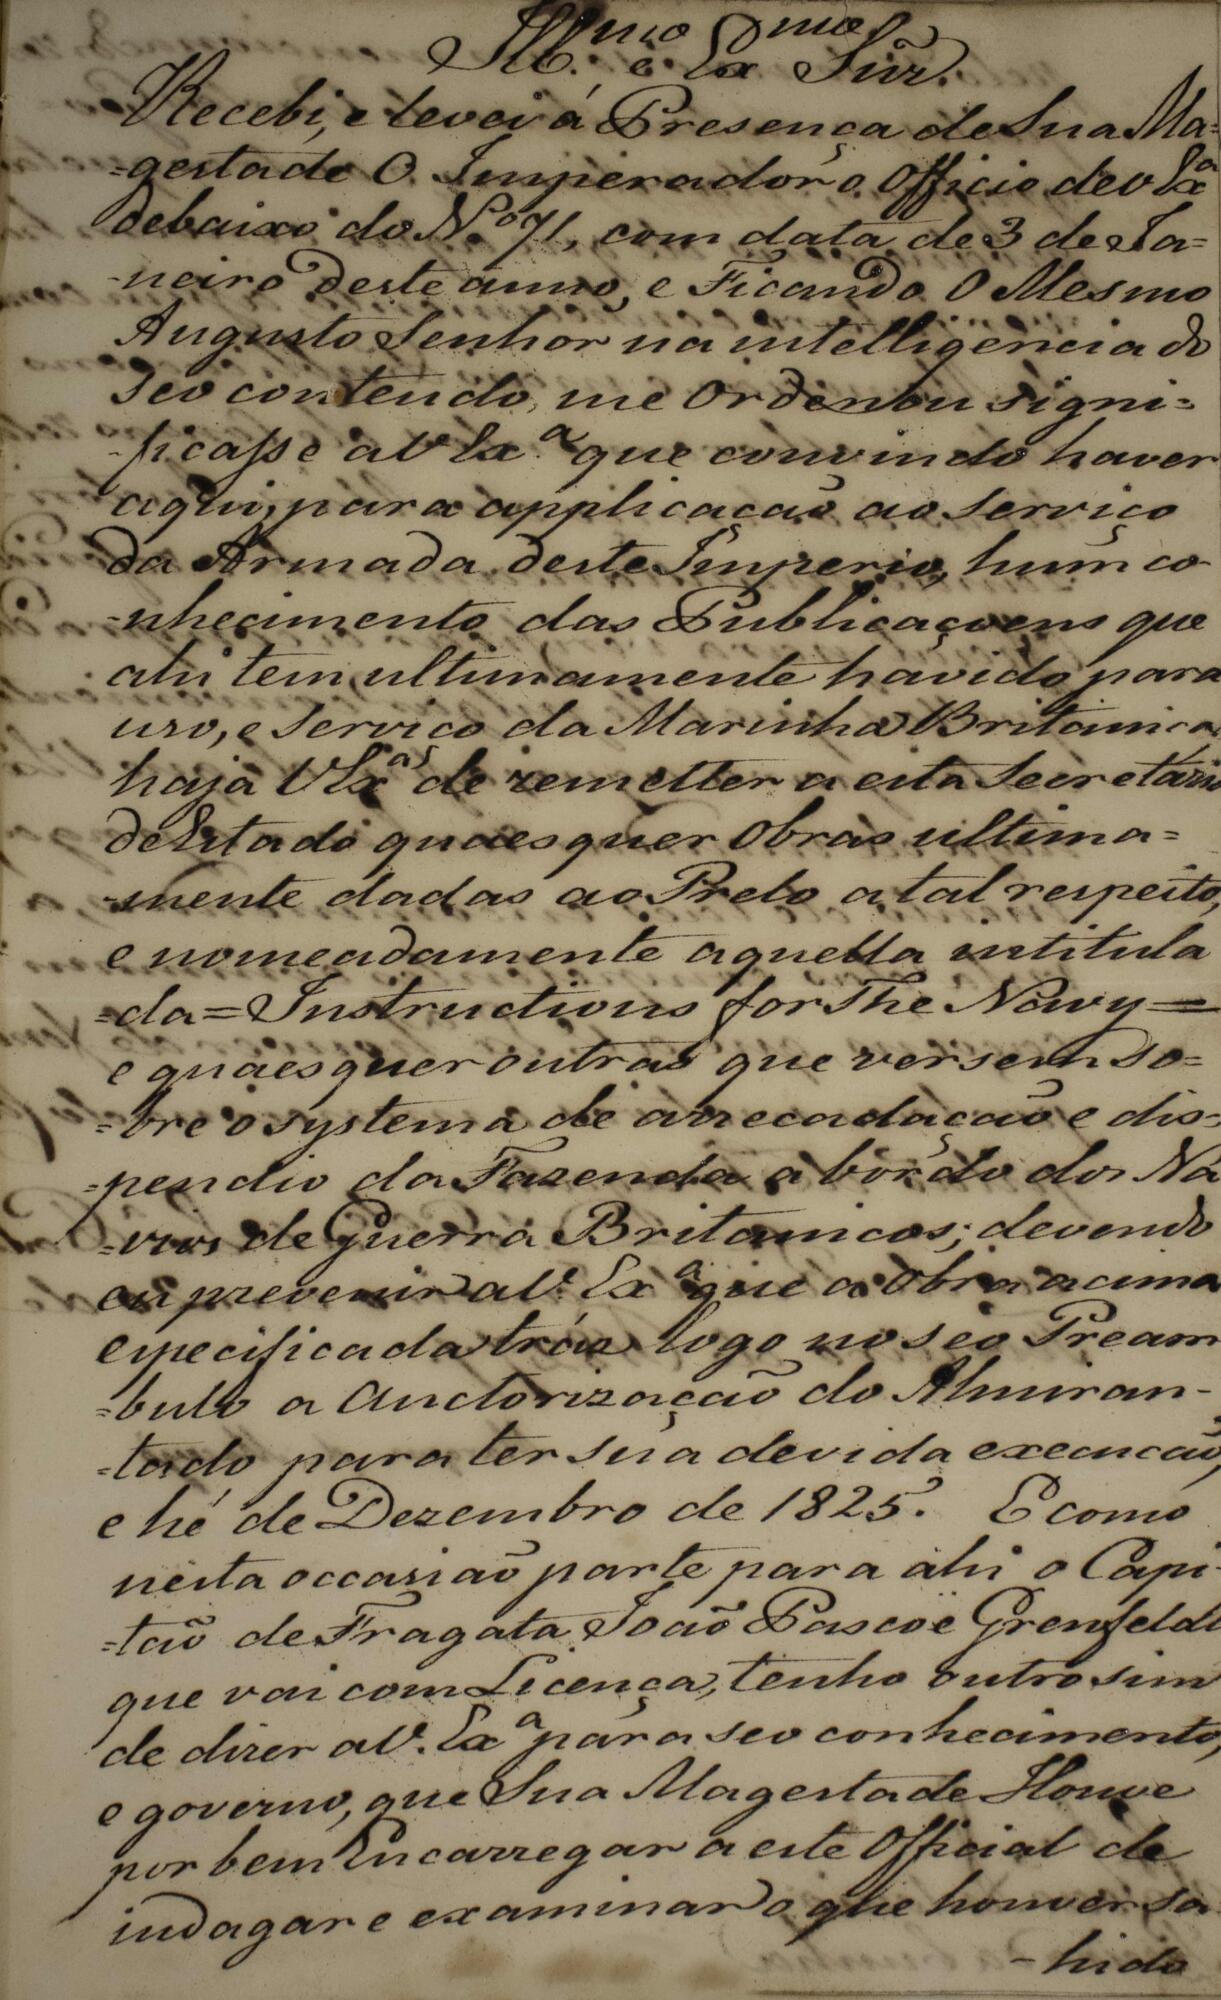 Ill.mo e Ex.mo Snr.
Recebi, e levei á Presença de Sua Ma=
=gestade O Imperador o Officio de V Ex.a
debaixo do N.o 71, com data de 3 de Ja=
-neiro deste anno, e Ficando O Mesmo
Augusto Senhor na intelligencia do
seo contendo, me Ordenou signi=
-ficasse a V Ex.a que convindo haver
aqui, para applicação ao serviço
da Armada deste Imperio, hum co-
-nhecimento das Publicaçoens que
ahi tem ultimamente havido para
uso, e serviço da Marinha Britanica
haja V Ex.as de remetter a esta Secretaria
de Estado quaesquer Obras ultima=
-mente dadas ao Prelo a tal respeito,
e nomeadamente aquella intitula
=da = Instructions for The Navy =
e quaesquer outras que versem so=
=bre o systema de arrecadação e dis=
=pendio da Fazenda a bordo dos Na
=vios de Guerra Britanicos; devendo
eu prevenir a V. Ex.a que a Obra acima
especificada tráz logo no seo Pream
=bulo a Auctorização do Almiran-
=tado para ter sua devida execução,
e hé de Dezembro de 1825. E como
nesta occasião parte para ahi o Capi-
=tão de Fragata João Pascoe Grenfeldt
que vai com Licença, tenho outro sim
de dizer a V. Ex.a para seo conhecimento,
e governo, que Sua Magestade Houve
por bem Encarregar a este Official de
indagar e examinar o que houver sa
-hido